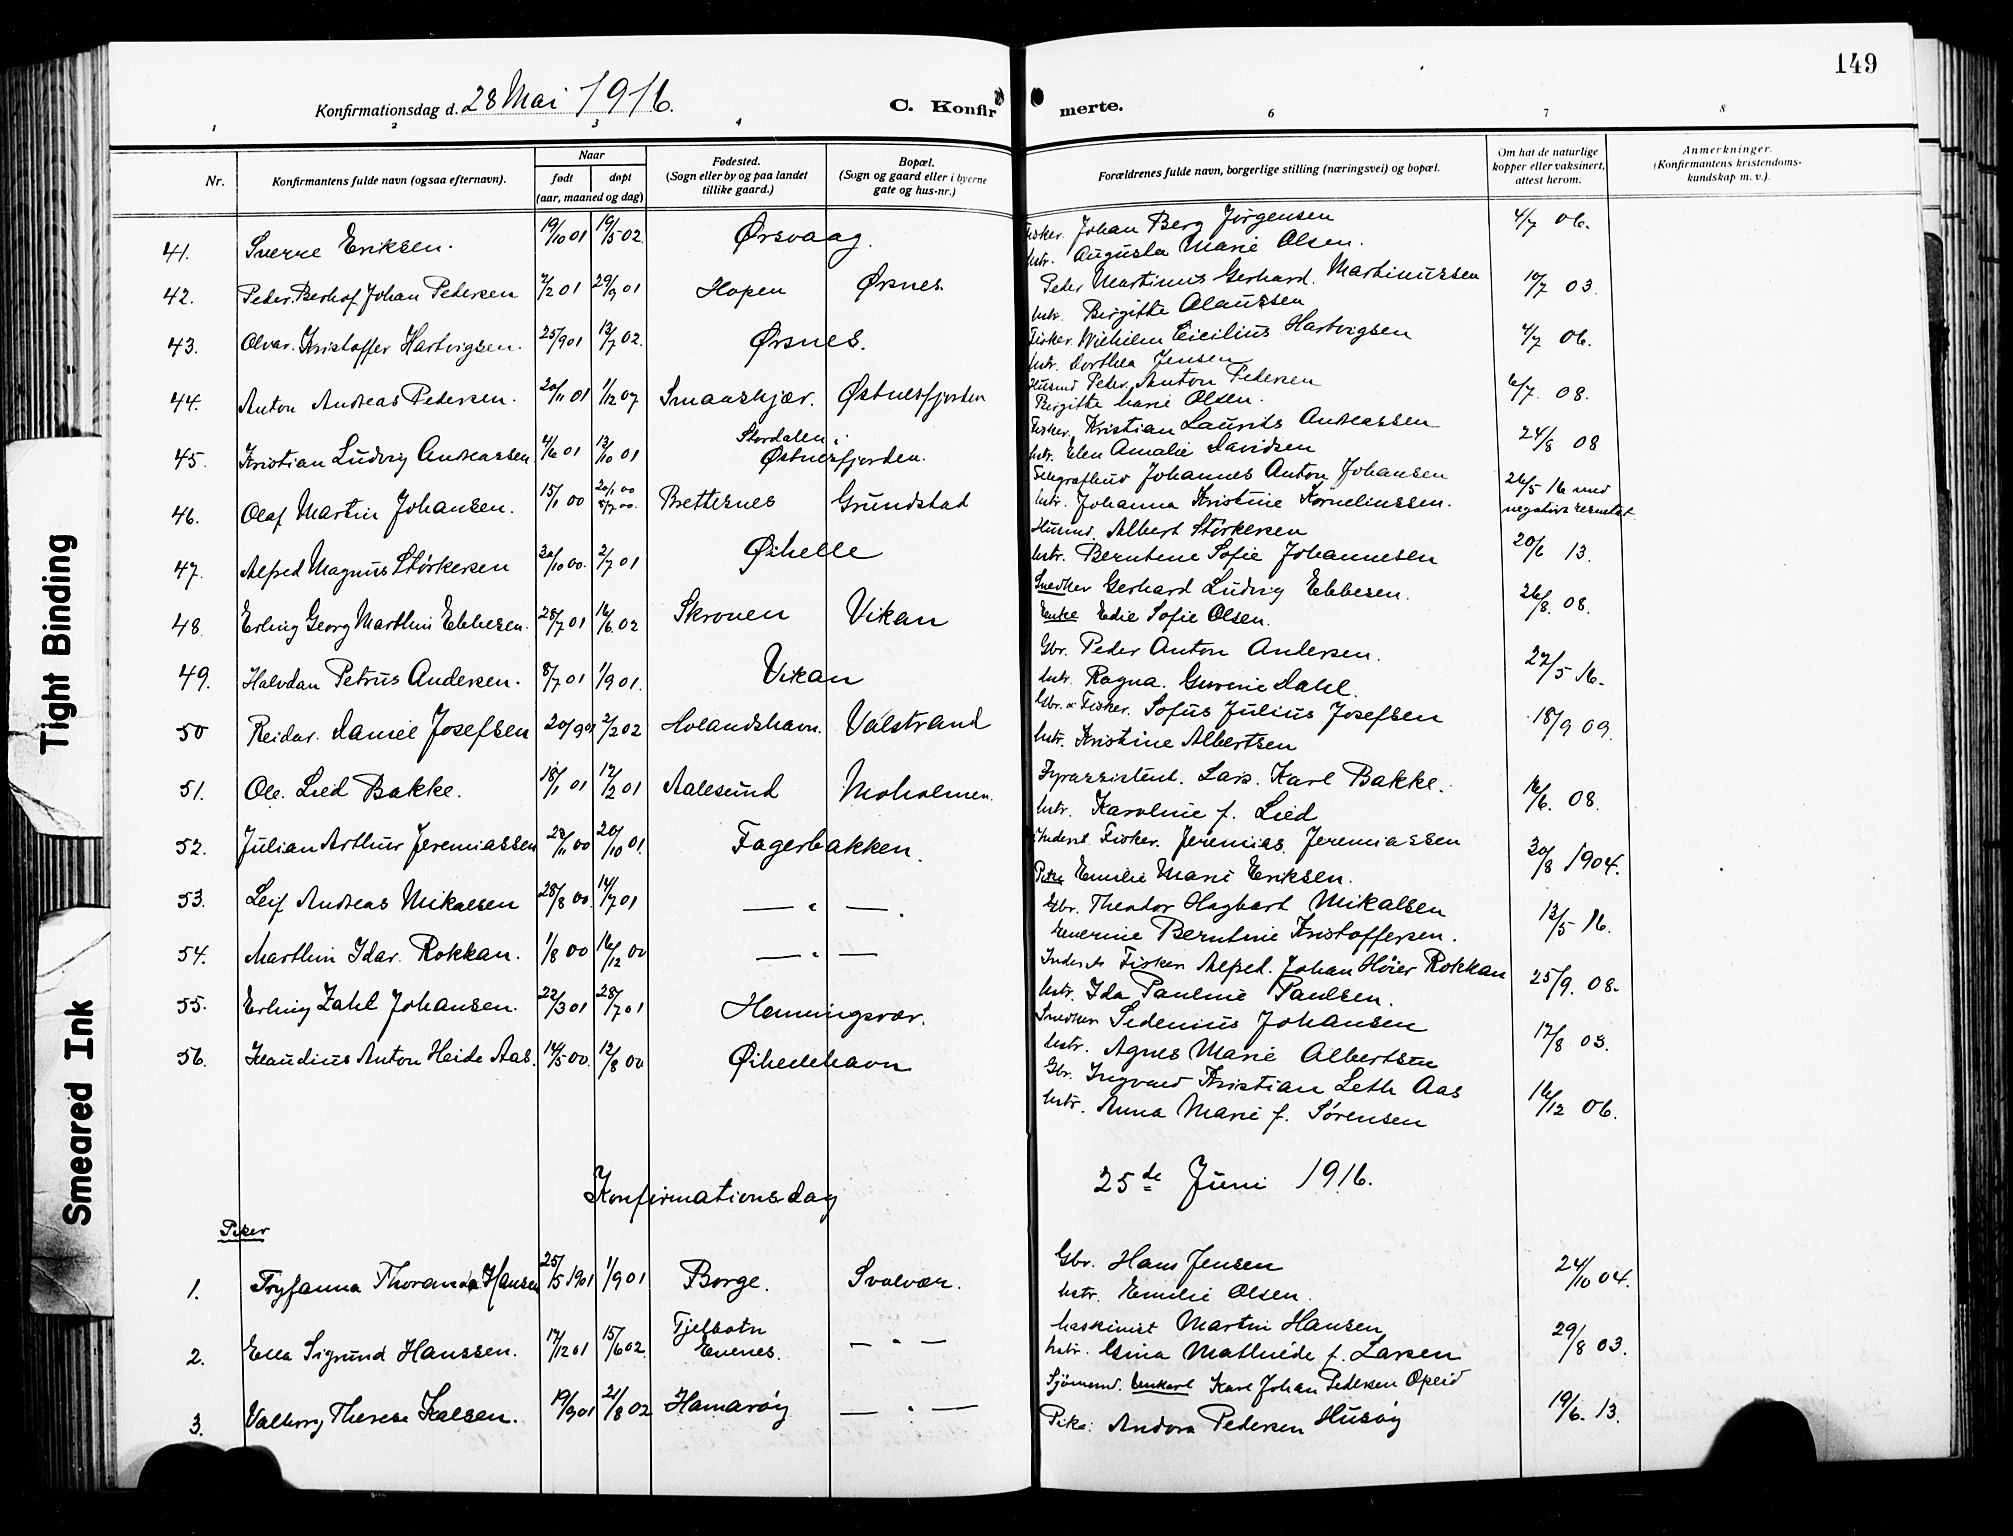 149
Konfirmationsdag d. 28 Mai 1916.
C. Konfirmerte.
1 2 3 4 6 7 8
Nr.
Konfirmantens fulde navn (ogsaa efternavn).
Naar
født
døpt
(aar, maaned og dag)
Fødested.
(Sogn eller by og paa landet
tillike gaard.)
Bopæl.
(Sogn og gaard eller i byerne
gate og hus-nr.)
Forældrenes fulde navn, borgerlige stilling (næringsvei) og bopæl.
Om hat de naturlige
kopper eller vaksinert,
attest herom.
Anmerkninger.
(Konfirmantens kristendoms-
kundskap m. v.).
41. Sverre Eriksen. 19/10 01 19/5 02. Ørsvaag. Fisker. Johan Berg Jørgensen 4/7 06.
hstr. Augusta Marie Olsen.
42. Peder Berhof Johan Pedersen 2/2 01 29/9 01 Hopen Ørsnes. Peder Martinus Gerhard Martinussen 10/7 03.
hstr. Birgitte Olaussen
43. Alvar Kristoffer Hartvigsen. 25/9 01 13/7 02. Ørsnes. Fisker. Wilhelm Cicilius Hartvigsen 4/7 06.
hstr. Dorthea Jensen
44. Anton Andreas Pedersen. 20/11 01 1/12 07 Smaaskjær. Østnesfjorden Husmd Peder Anton Pedersen 6/7 08.
Birgitte Marie Olsen.
45. Kristian Ludvig Andreassen. 4/6 01 13/10 01 Stordalen i
Østnesfjorden. Fisker. Kristian Laurits Andreassen 24/8 08
hstr. Elen Amalie Davidsen
46. Olaf Martin Johansen. 15/1 00 20/1 00 5/7 00. Brettesnes Grundstad Telegrafbud Johannes Anton Johansen 26/5 16 med
hstr. Johanna Kristine Korneliussen. negativt resultat
47. Alfred Magnus Størkersen 30/10 00. 2/7 01 Øihelle Husmd. Albert Størkersen 20/6 13.
hstr. Berntine Sofie Johannesen
48. Erling Georg Marthin Ebbesen. 28/7 01 16/6. 02 Skroven Vikan Snedker Gerhard Ludvig Ebbesen. 26/8. 08.
Enke Edie Sofie Olsen.
49. Halvdan Petrus Andersen. 8/7 01 1/9 01. Vikan Gbr. Peder Anton Andersen. 27/5 16.
hstr. Ragna Gurine Dahl.
50 Reidar Daniel Josefsen 20/9 01 2/2 02 Holandshavn. Valstrand Gbr. & Fisker. Sofus Julius Josefsen 18/9 09.
hstr. Kristine Albertsen
51. Ole Lied Bakke. 18/1 01 12/2 01 Aalesund Moholmen. Fyrassistent. Lars Karl Bakke. 16/6. 08.
hstr. Karoline f. Lied
52. Julian Arthur Jeremiassen 22/11 00 20/10 01. Fagerbakken. Inderst Fisker. Jeremias Jeremiassen 30/8 1904.
Pike Emilie Marie Eriksen.
53. Leif Andreas Mikalsen 28/8 00. 14/7 01 — " —. Gbr. Theodor Hagbart Mikalsen 13/5 16.
Severine Berntine Kristoffersen.
54. Marthin Idar Rokkan. 1/8 00 16/12 00 — " — Inderst Fisker Alfred Johan Høier Rokkan 25/9. 08.
hstr. Ida Pauline Paulsen.
55. Erling Zahl Johansen. 22/3 01 28/7 01 Henningsvær. Snedker Sidenius Johansen 17/8 03.
hstr. Agnes Marie Albertsen
56. Klaudius Anton Heide Aas. 14/5 00. 12/8 00 Øihellehavn Gbr. Ingvard Kristian Leth Aas 16/12 06.
hstr. Anna Marie f. Sørensen
Konfirmationsdag 25de Juni 1916.
Piker
1. Tryfanna Thoranda Hansen 25/5 1901 1/9 01 Borge. Svolvær. Gbr. Hans Jensen 24/10 04.
hstr. Emilie Olsen.
2. Ella Sigrund Hanssen. 17/12 01 15/6 02 Fjelbotn
Evenes. — " — Maskinist Martin Hansen 29/8 03.
hstr. Gina Mathilde f. Larsen
3. Valborg Therese Karlsen. 19/9 01 21/8 02 Hamarøy — " — Sjømand. Unkarl Karl Johan Pedersen Opeid 19/6. 13.
Pike: Andora Pedersen Husøy
Tight Binding
Smeared Ink